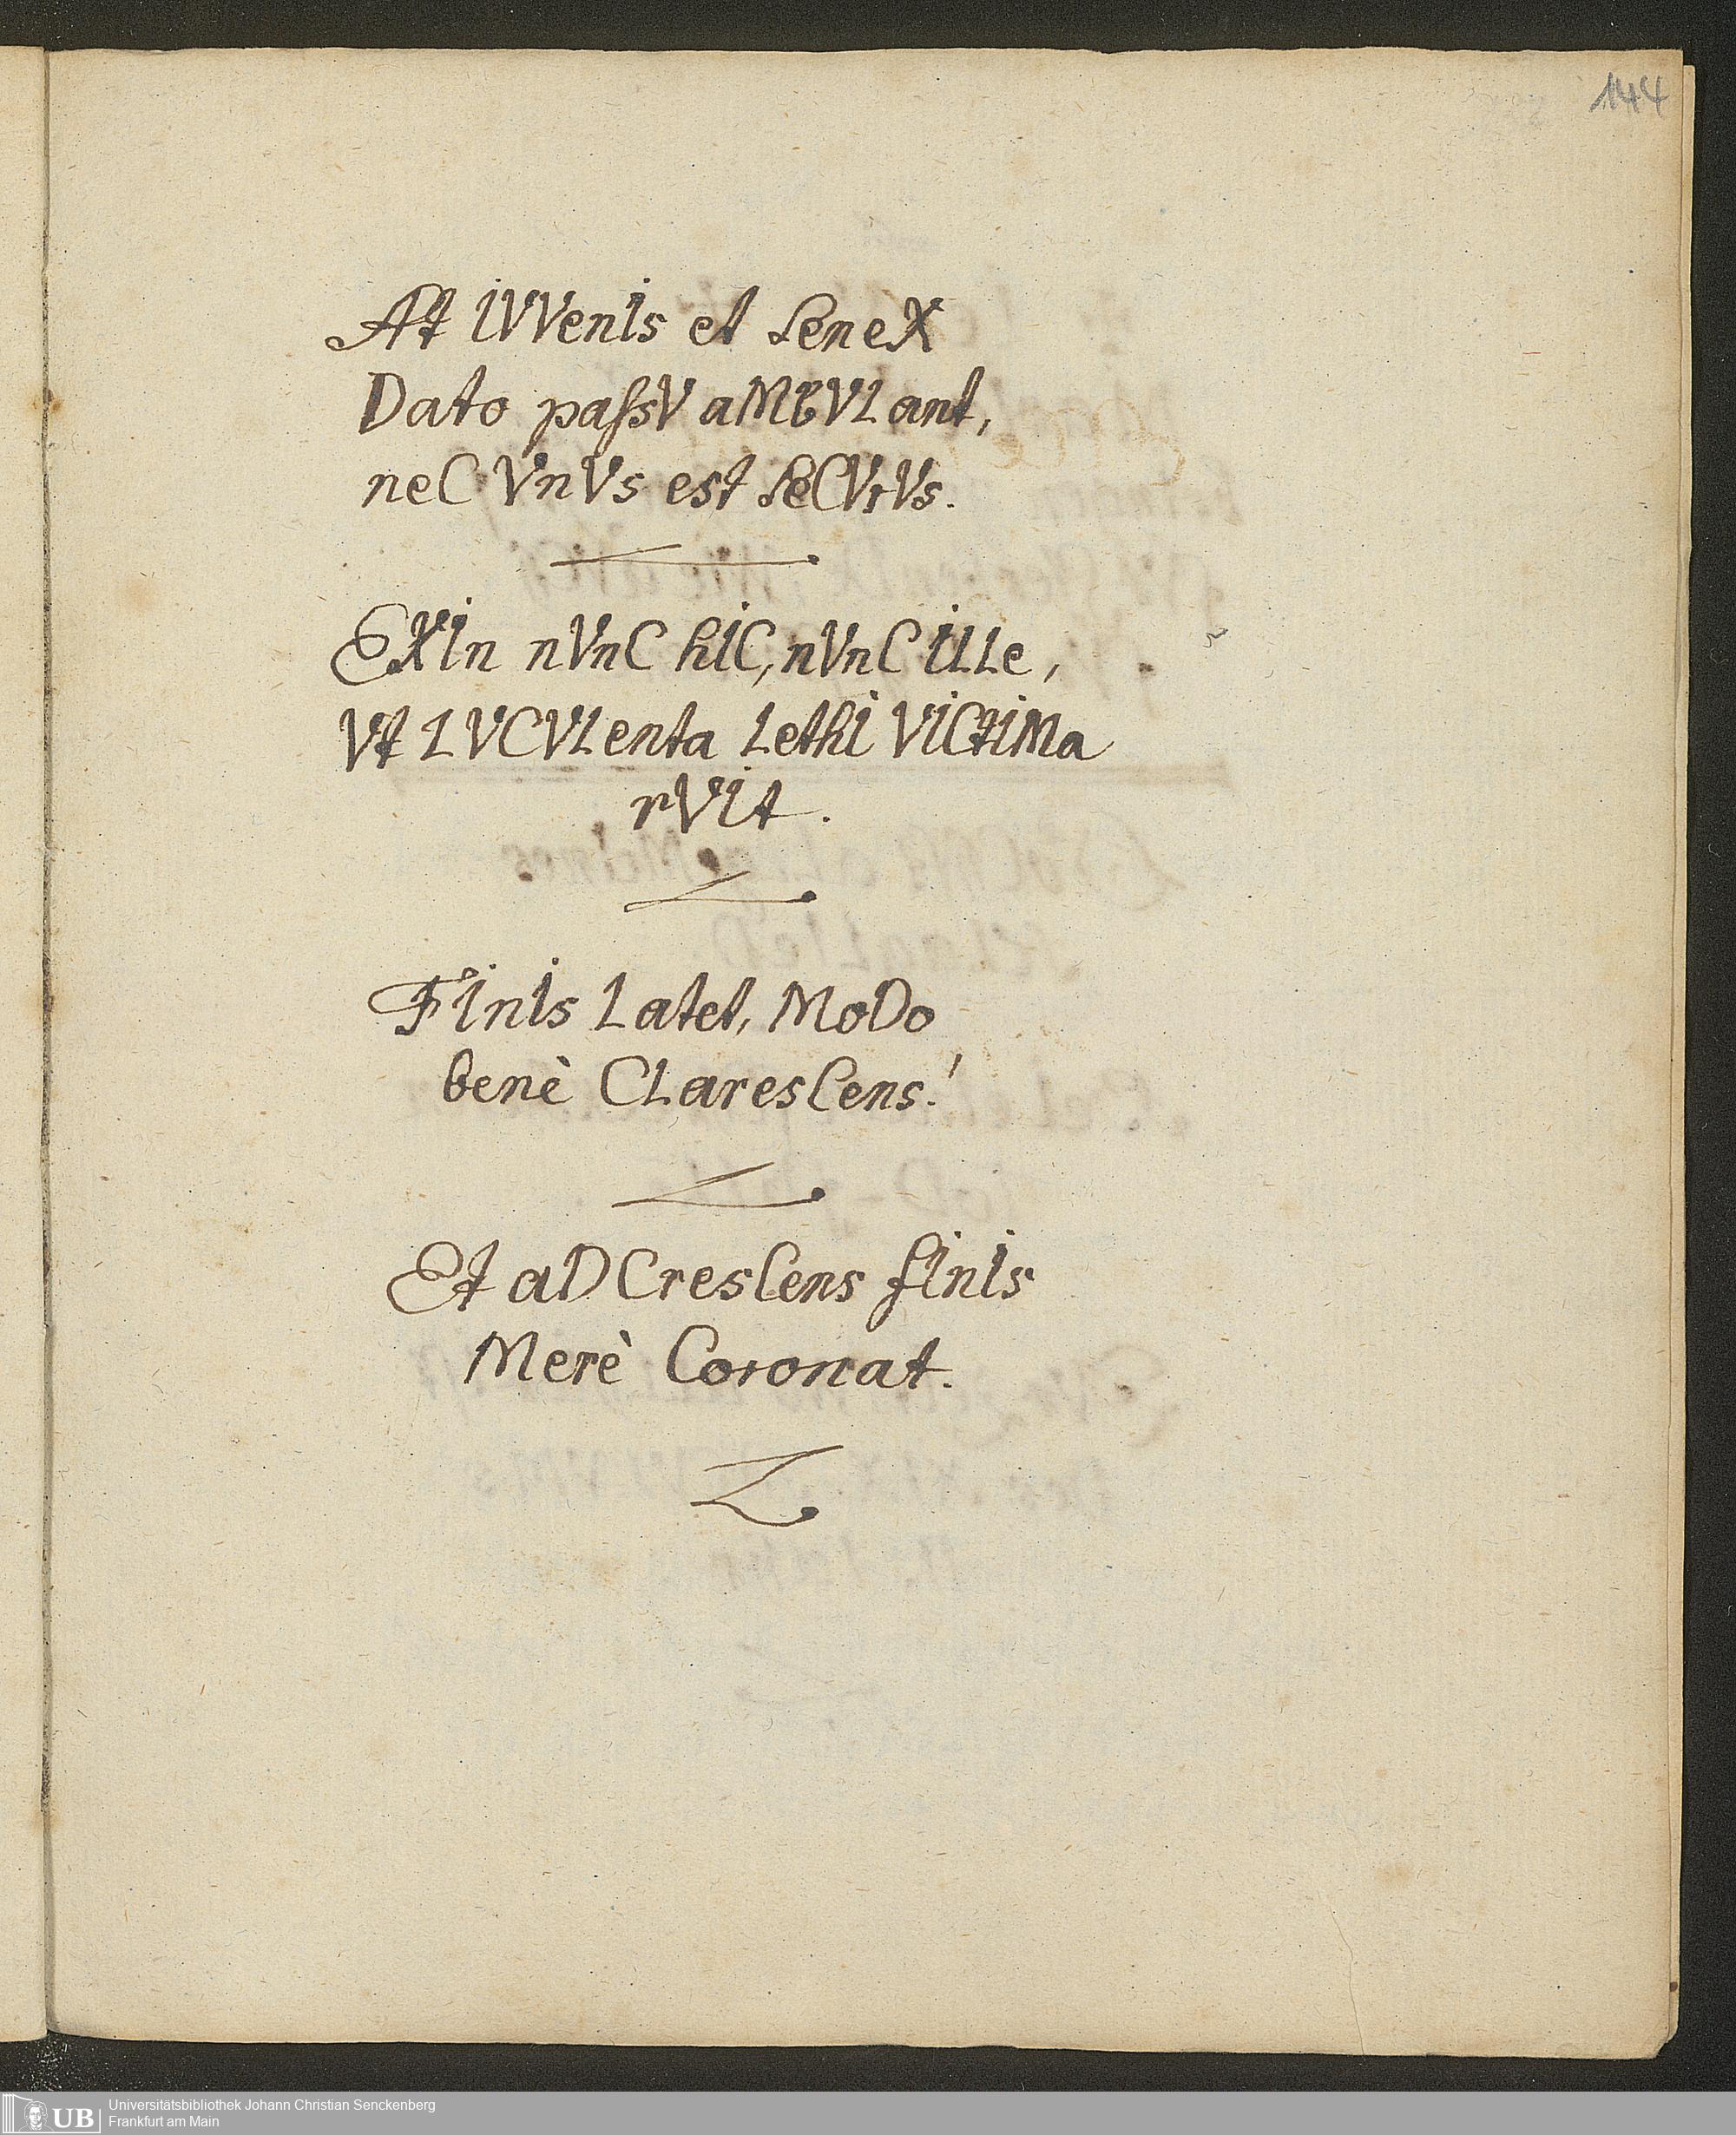 144
At IVVenIs et seneX
Dato passV aMbVLant,
neC VnVs est seCVrVs.
EXIn nVnC hIC, nVnC ILLe,
Vt LVCVLenta LethI VICtIMa
rVIt.
FInIs Latet, MoDo
benè CLaresCens!
Et aDCresCens fInIs
Merè Coronat.
UB
Universitätsbibliothek Johann Christian Senckenberg
Frankfurt am Main